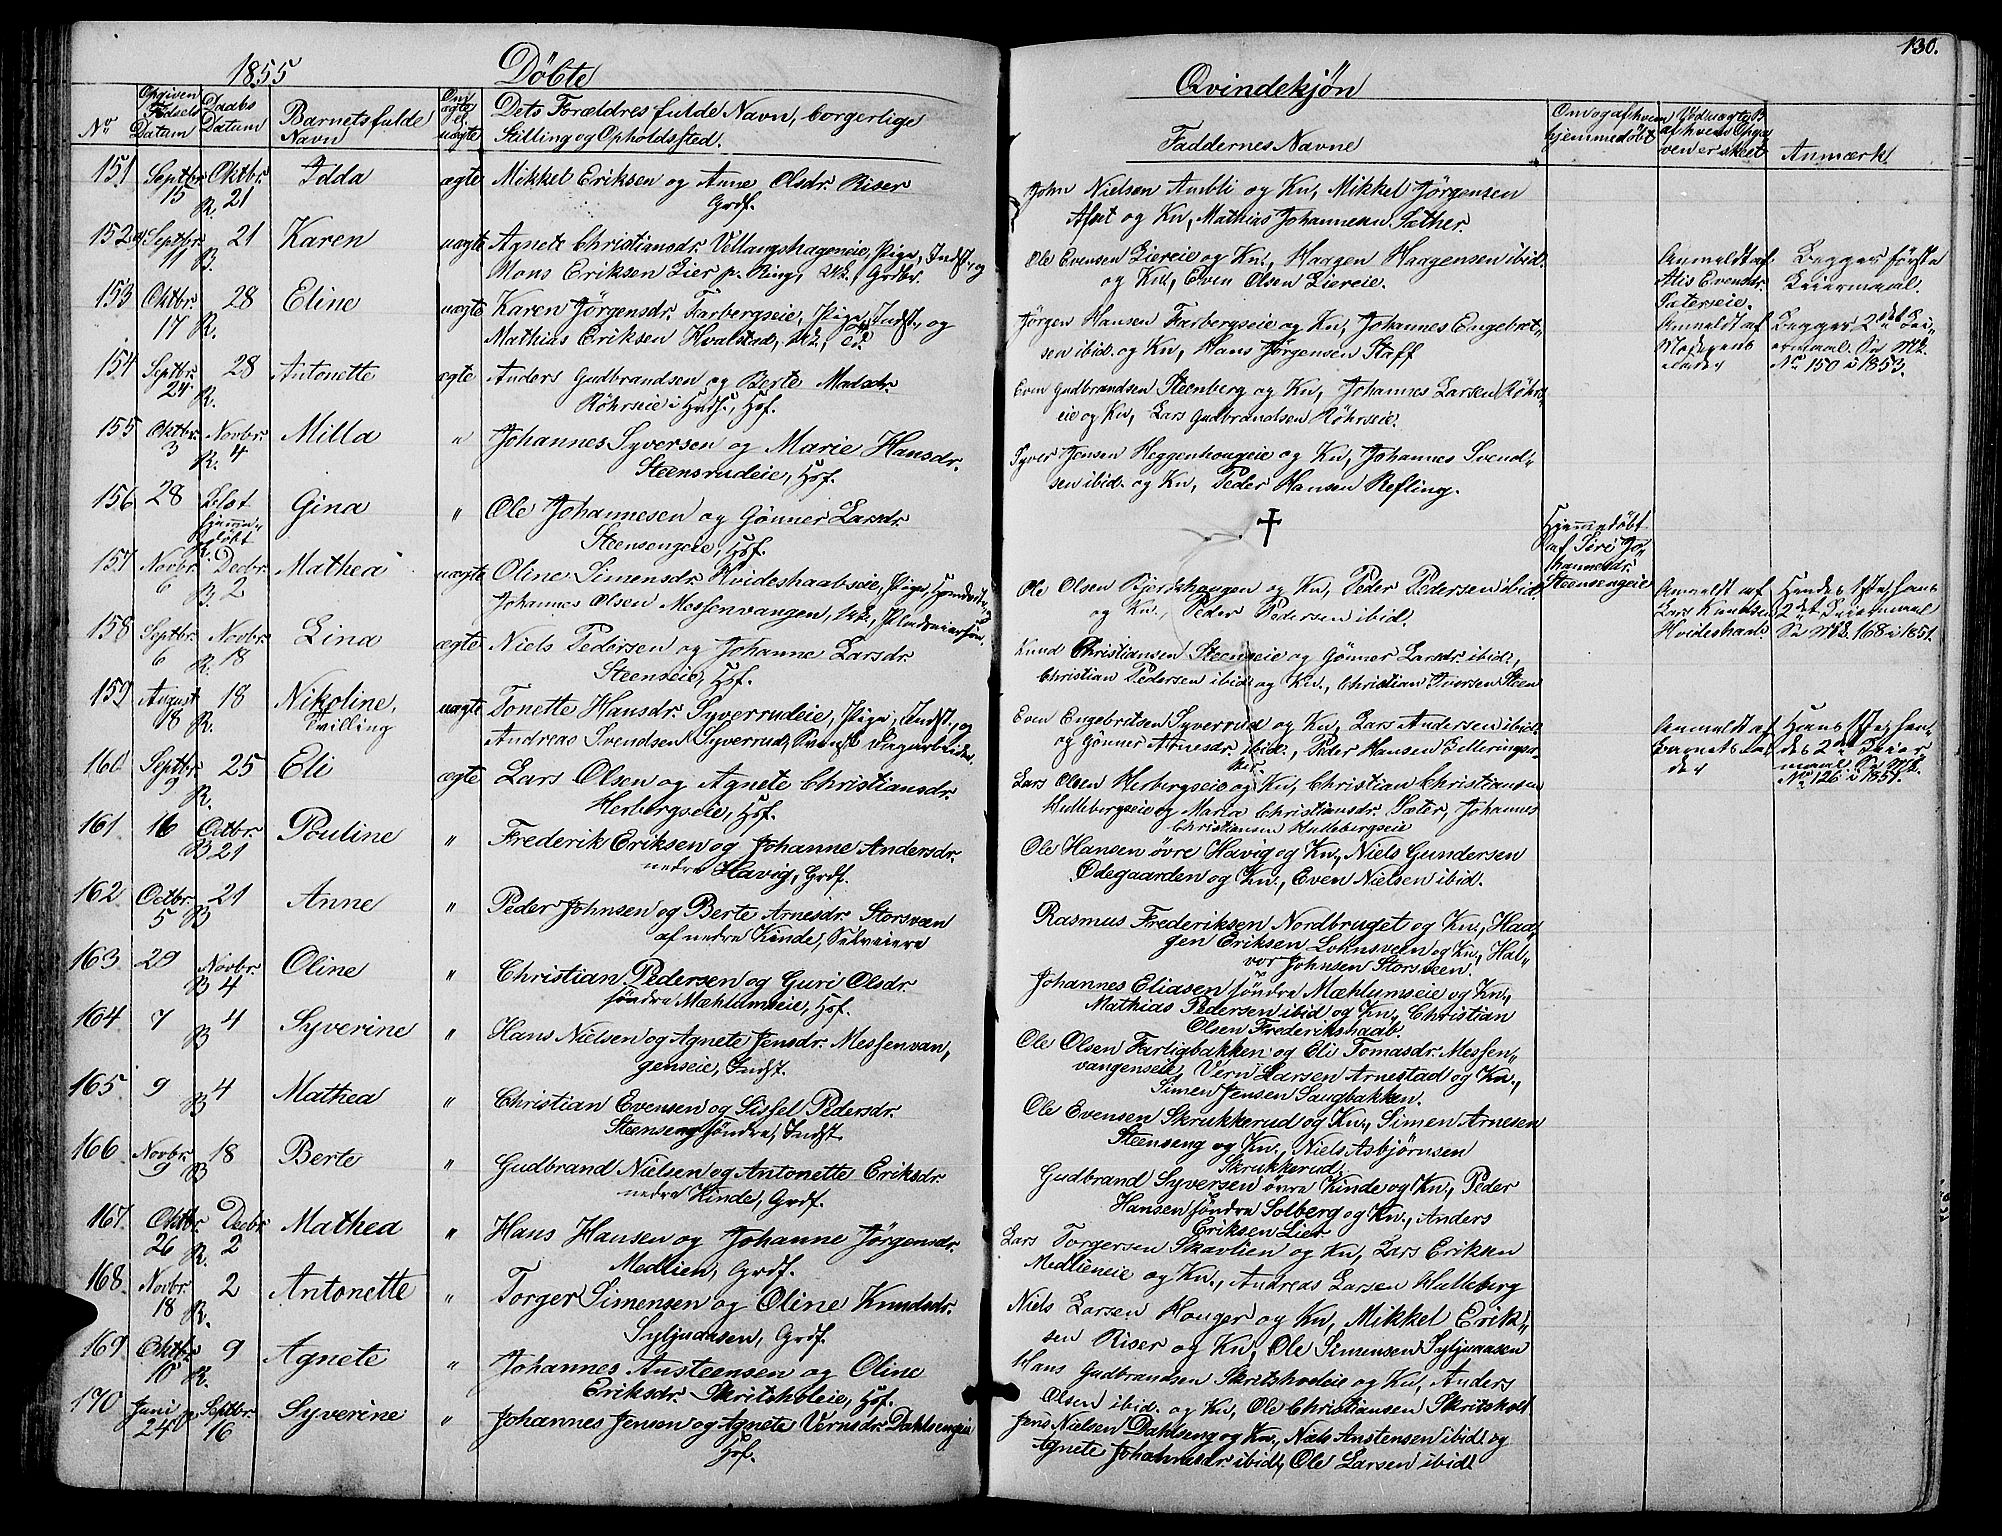 1855
Döbte
Qvindekjøn
130.
No
Opgiven Fødsels Datum
Daabs Datum
Barnets fulde Navn
Om ægte el. uægte
Dets Forældres fulde Navn, borgerlige
Stilling og Opholdssted.
Faddernes Navne
Om og af hvem hjemmedöbt
Ved uægte B. af hvem Opgaven er skeet
Anmærk
151 Septbr. 15 Oktbr. 21 R. Idda ægte Mikkel Eriksen og Anne Olsdr. Riser
Grdf.
John Nielsen Ambli og Kn, Mikkel Jörgensen
Afset og Kn, Mathias Johannesen Sæther.
152 Septbr. 11 21 B. Karen uægte Agnete Christiansdr. Vellangshageneie, Pige, Indst. og
Mons Eriksen Lier p. Ring, Uk., Grdbr.
Ole Evensen Liereie og Kn., Haagen Haagensen ibid.
og Kn., Even Olsen Liereie.
Anmeldt af
Alis Evensdr.
Sæterseie.
Begges förste
Leiermaal.
153 Oktbr. 17 28 R. Eline uægte Karen Jörgensdr. Farbergseie, Pige, Indst., og
Mathias Eriksen Hvalstad, Uk.,
Jörgen Hansen Farbergseie og Kn, Johannes Engebret-
sen ibid. og Kn, Hans Jörgensen Staff
Anmeldt af
Moderens
Fader
Begges 2det Lei-
ermaal. Se Mk.
No 150 i 1853.
154 Septbr. 24 28 R. Antonette ægte Anders Gudbrandsen og Berte Madsdr.
Röhrseie i Hrdf., Hsf.
Even Gudbrandsen Steenberg og Kn, Johannes Larsen Röhrs-
eie og Kn, Lars Gudbrandsen Röhrseie.
155 Oktbr. 3 Novbr. 4 R. Milla " Johannes Syversen og Marie Hansdr.
Steensrudeie, Hsf.
Syver Jensen Heggenhougeie og Kn, Johannes Svend-
sen ibid. og Kn, Peder Hansen Refling.
156 28 Hjemmedöbt R. Gina " Ole Johannesen og Gönner Larsdr
Steensengeie, Hsf.
†
Hjemmedöbt
af Siri Jo-
hannesdr.
Steensengeie
157 Novbr. 6 Decbr. 2 B. Mathea uægte Oline Simensdr. Hvideshaabseie, Pige,
Johannes Olsen Messenvangen, Uk., Pladseiersön.
Ole Olsen Bjerkehaugen og Kn, Peder Pedersen ibid.
og Kn., Peder Pedersen ibid.
Anmeldt af
Lars Knudsen
Hvideshaab
Hendes 1ste, hans
2det Leiermaal
Se Mk. 168 i 1851.
158 Septbr. 6 Novbr. 18 R. Lina ægte Niels Pedersen og Johanne Larsdr.
Steenseie, Hsf.
Knud Christiansen Steenseie og Gönner Larsdr. ibid.,
Christian Pedersen ibid. og Kn., Christian Iversen Steen
159 August 18 18 R. Nikoline, Tvilling uægte Tonette Hansdr. Syverrudeie, Pige, Indst., og
Andreas Svendsen Syverrud, Svensk Dagarbeider
Even Engebritsen Syverrud og Kn, Lars Andersen ibid.
og Gönner Arnesdr. ibid., Peder Hansen Gilleringer-
eie
Anmeldt af
Barnets Fa-
der
Hans 1ste, hen-
des 2det Leier-
maal. Se Mk.
No 126 i 1851.
160 Septbr. 2 25 R. Eli ægte Lars Olsen og Agnete Christiansdr.
Herbergseie, Hsf.
Lars Olsen Herbergseie og Kn, Christian Christiansen
Hullebergseie og Maria Christiansdr. Sæter, Johannes
Christiansen Hullebergseie
161 16 Octbr. 21 B Pouline " Frederik Eriksen og Johanne Andersdr.
nedre Havig, Grdf.
Ole Hansen övre Havig og Kn., Niels Gundersen
Ödegaarden og Kn., Even Nielsen ibid.
162 Octbr. 5 21 B Anne " Peder Johnsen og Berte Arnesdr. Storsveen
af nedre Kinde, Selveiere
Rasmus Frederiksen Nordbruget og Kn., Haa-
gen Eriksen Lohnsveen og Kn., Hal-
vor Johnsen Storsveen.
163 29 Novbr. 4 B Oline " Christian Pedersen og Guri Olsdr.
söndre Mæhlumseie, Hsf.
Johannes Eliasen söndre Mæhlumseie og Kn.,
Mathias Pedersen ibid og Kn., Christian
Olsen Frederikshaab.
164 7 4 B Syverine " Hans Nielsen og Agnete Jensdr. Messenvan-
genseie, Indst.
Ole Olsen Farligbakken og Eli Tomasdr. Messen-
vangenseie, Vern Larsen Arnestad og Kn.,
Simen Jensen Saugbakken.
165 9 4 B Mathea " Christian Evensen og Sissel Pedersdr.
Steenseng söndre, Indst
Ole Evensen Skrukkerud og Kn., Simen Arnesen
Steenseng og Kn., Niels Asbjørnsen
Skrukkerud.
166 Novbr. 9 18 B Berte " Gudbrand Nielsen og Antonette Eriksdr.
nedre Kinde, Grdf.
Gudbrand Syversen övre Kinde og Kn., Peder
Hansen söndre Solberg og Kn., Anders
Eriksen Lier
167 Oktbr. 26 Decbr. 2 R. Mathea " Hans Hansen og Johanne Jörgensdr.
Medlien, Grdf.
Lars Torgersen Skavlien og Kn, Lars Eriksen
Medlieneie og Kn., Andreas Larsen Hulleberg
168 Novbr. 18 2 R. Antonette " Torger Simensen og Oline Knudsdr.
Syljuaasen, Grdf.
Niels Larsen Houger og Kn, Mikkel Erik-
sen Riser og Kn, Ole Simensen Syljuaasen
169 Oktbr. 10 9 R. Agnete " Johannes Ansteensen og Oline
Eriksdr. Skritsholeie, Hsf.
Hans Gudbrandsen Skritsholeie og Kn, Anders
Olsen ibid. og Kn, Ole Christiansen Skritshol
170 Juni 24 Septbr. 16 Syverine " Johannes Jensen og Agnete Vernsdr. Dahlsengeie
Hsf.
Jens Nielsen Dahlseng og Kn., Niels Anstensen ibid. og
Agnete Johannesdr. ibid, Ole Larsen ibid.